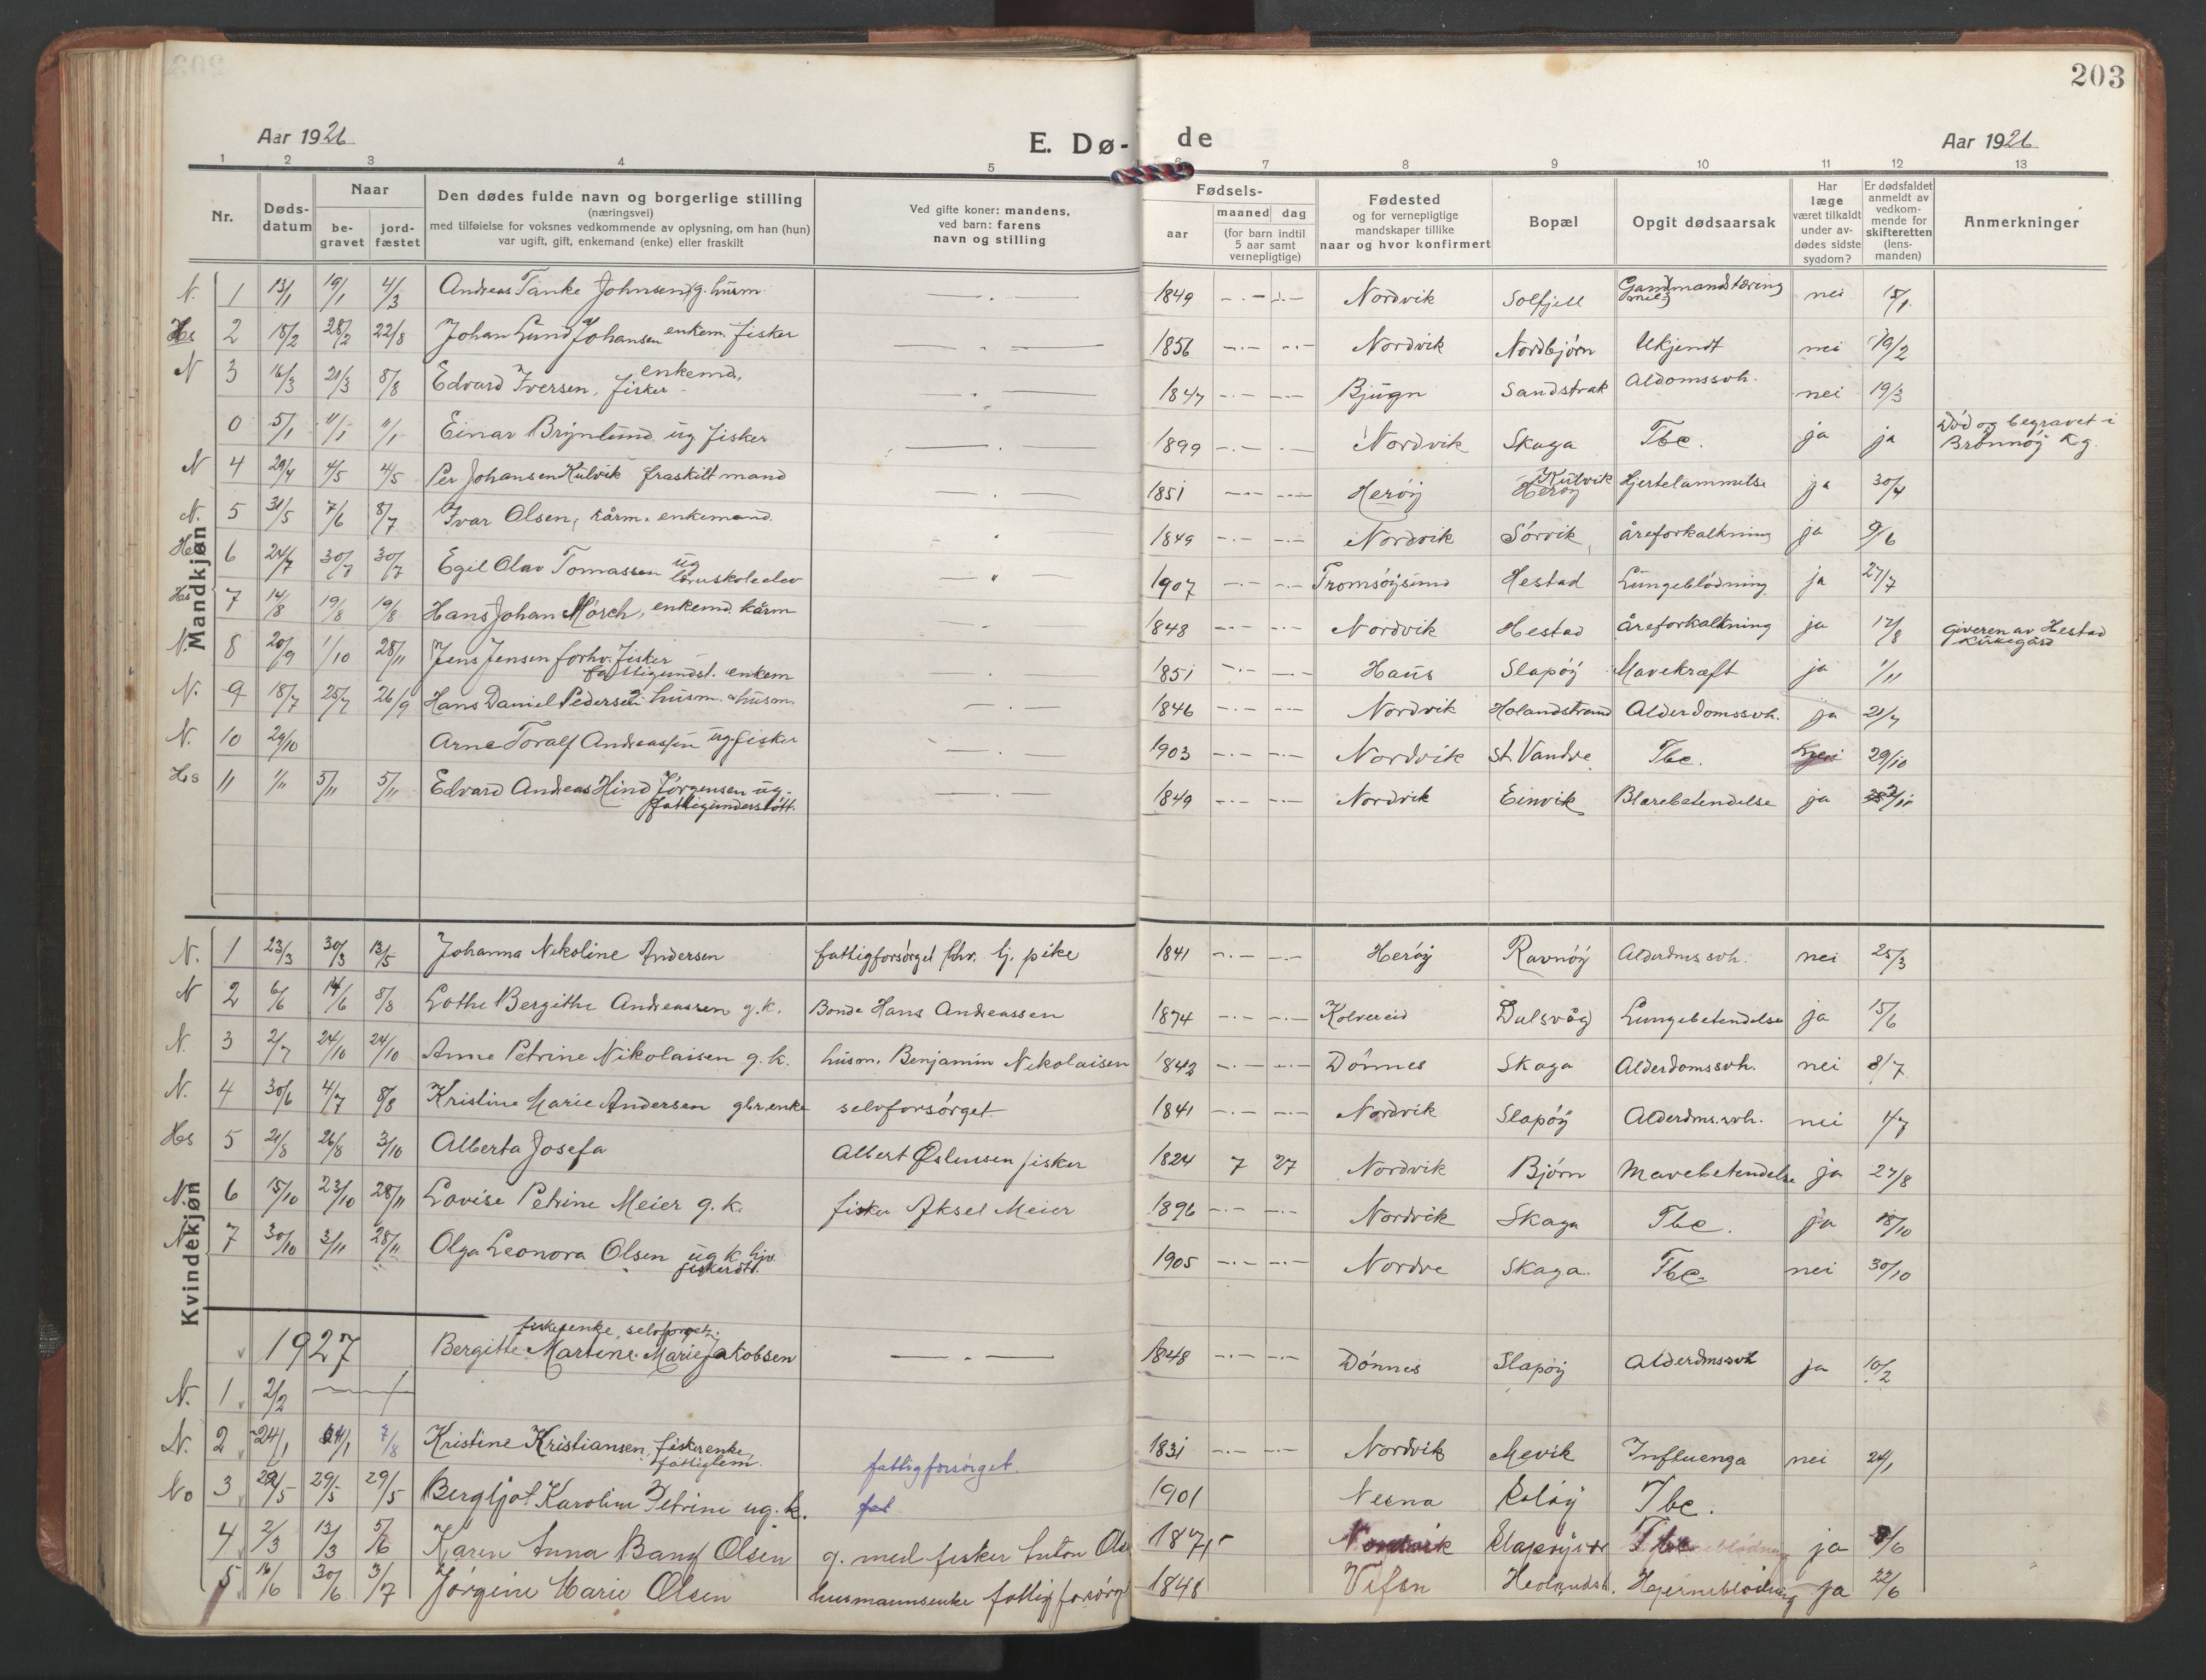 203
Aar 1926 E. Dø- de Aar 1926
1 2 3 4 5 6 7 8 9 10 11 12 13
Nr. Døds-datum Naar be-gravet jord-fæstet Den dødes fulde navn og borgerlige stilling (næringsvei) med tilføielse for voksnes vedkommende av oplysning, om han (hun) var ugift, gift, enkemand (enke) eller fraskilt Ved gifte koner: mandens, ved barn: farens navn og stilling Fødsels- aar maaned dag (for barn indtil 5 aar samt vernepligtige) Fødested og for vernepligtige mandskaper tillike naar og hvor konfirmert Bopæl Opgit dødsaarsak Har læge været tilkaldt under av-dødes sidste sygdom? Er dødsfaldet anmeldt av vedkom-mende for skifteretten (lens-manden) Anmerkninger
Mandkjøn
N. 1 13/1 19/1 4/3 Andreas Tanke Johnsen g. husm. 1849 Nordvik Solfjell nei 15/1
Hs 2 18/2 28/2 22/8 Johan Lund Johansen enkem. fisker 1856 Nordvik Nordbjørn Ukjendt nei 19/2
N 3 16/3 21/3 8/8 Edvard Iversen, fisker enkemd, 1847 Bjugn Sandstrak Aldomssvh. nei 19/3
0 5/1 11/1 11/1 Einar Brynlund ug fisker 1899 Nordvik Skaga Tbc. ja ja Död og begravet i Brönnöy Kg.
N 4 29/4 4/5 4/5 Per Johansen Kulvik fraskilt mand 1851 Heröy Kulvik Heröy Hjertelammelse ja 30/4
N. 5 31/5 7/6 8/7 Ivar Olsen, kårm. enkemand. 1849 Nordvik Sörvik åreforkalkning ja 9/6
Hs 6 24/7 30/7 30/7 Egil Olav Tomassen ug 1907 Tromsöysund Hestad Lungeblödning ja 27/7
Hs 7 14/8 19/8 19/8 Hans Johan Mörch, enkemd. kårm 1848 Nordvik Hestad åreforkalkning ja 17/8 Giveren av Hestad Kirkegård
N. 8 20/9 1/10 28/11 Jens Jensen forhv. fisker fattigundst. enkem 1851 Haus Slapöy Mavekræft ja 1/11
N. 9 18/7 25/7 26/9 Hans Daniel Pedersen husm. 1846 Nordvik Holandstrand Alderdomssvh. ja 21/7
N. 10 29/10 Arne Toralf Andreassen ug fisker 1903 Nordvik St. Vandve Tbc. 29/10
Hs 11 1/11 5/11 5/11 Edvard Andreas Hind Jörgensen ug. fattigunderstött. 1849 Nordvik Einvik Blærebetendelse ja
Kvindekjøn
N. 1 23/3 30/3 13/5 Johanna Nikoline Andersen fattigforsörget fhv. tj. pike 1841 Heröy Ravnöy Alderdms svh. nei 25/3
N 2 6/6 14/6 8/8 Lothe Bergithe Andreassen g.k. Bonde Hans Andreassen 1874 Kolvereid Dalsvåg Lungebetendelse ja 15/6
N. 3 2/7 24/10 24/10 Anne Petrine Nikolaisen g.k. husm. Benjamin Nikolaisen 1842 Dönnes Skaga Alderdomssvh. nei 8/7
N. 4 30/6 4/7 8/8 Kristine Marie Andersen gbr.enke selvforsörget 1841 Nordvik Slapöy Alderdms.svh. nei 1/7
Hs 5 21/8 26/8 3/10 Alberta Josefa Albert fisker 1824 7 27 Nordvik Björn Mavebetendelse ja 27/8
N. 6 15/10 23/10 28/11 Lovise Petrine Meier g.k. fisker Aksel Meier 1896 Nordvik Skaga Tbc. ja 18/10
N 7 30/10 3/11 28/11 Olga Leonora Olsen ug k. hjv. fiskerdt. 1905 Nordvo Skaga. Tbc. nei 30/10
1927 fiskerenke, selvforget.
N. 1 2/2 Bergitte Martine Marie Jakobsen 1848 Dönnes Slapöy Alderdmssvh ja 10/2
N. 2 24/1 7/8 Kristine Kristiansen, fiskerenke, fattiglem. fattigforsörget. 1831 Nordvik Mevik Influenza nei 24/1
No 3 29/5 29/5 Bergljot Karoline Petrine ug. k. fat 1901 Nesna Tbc.
4 2/3 13/3 5/6 Karen Anna Bang Olsen g. med fisker Anton Ols 1871 Nordvik ja 8/6
5 16/6 30/6 3/7 Jörgine Marie Olsen husmannsenke fattigforsörg 1848 Vefsn Hjerneblödning ja 22/6